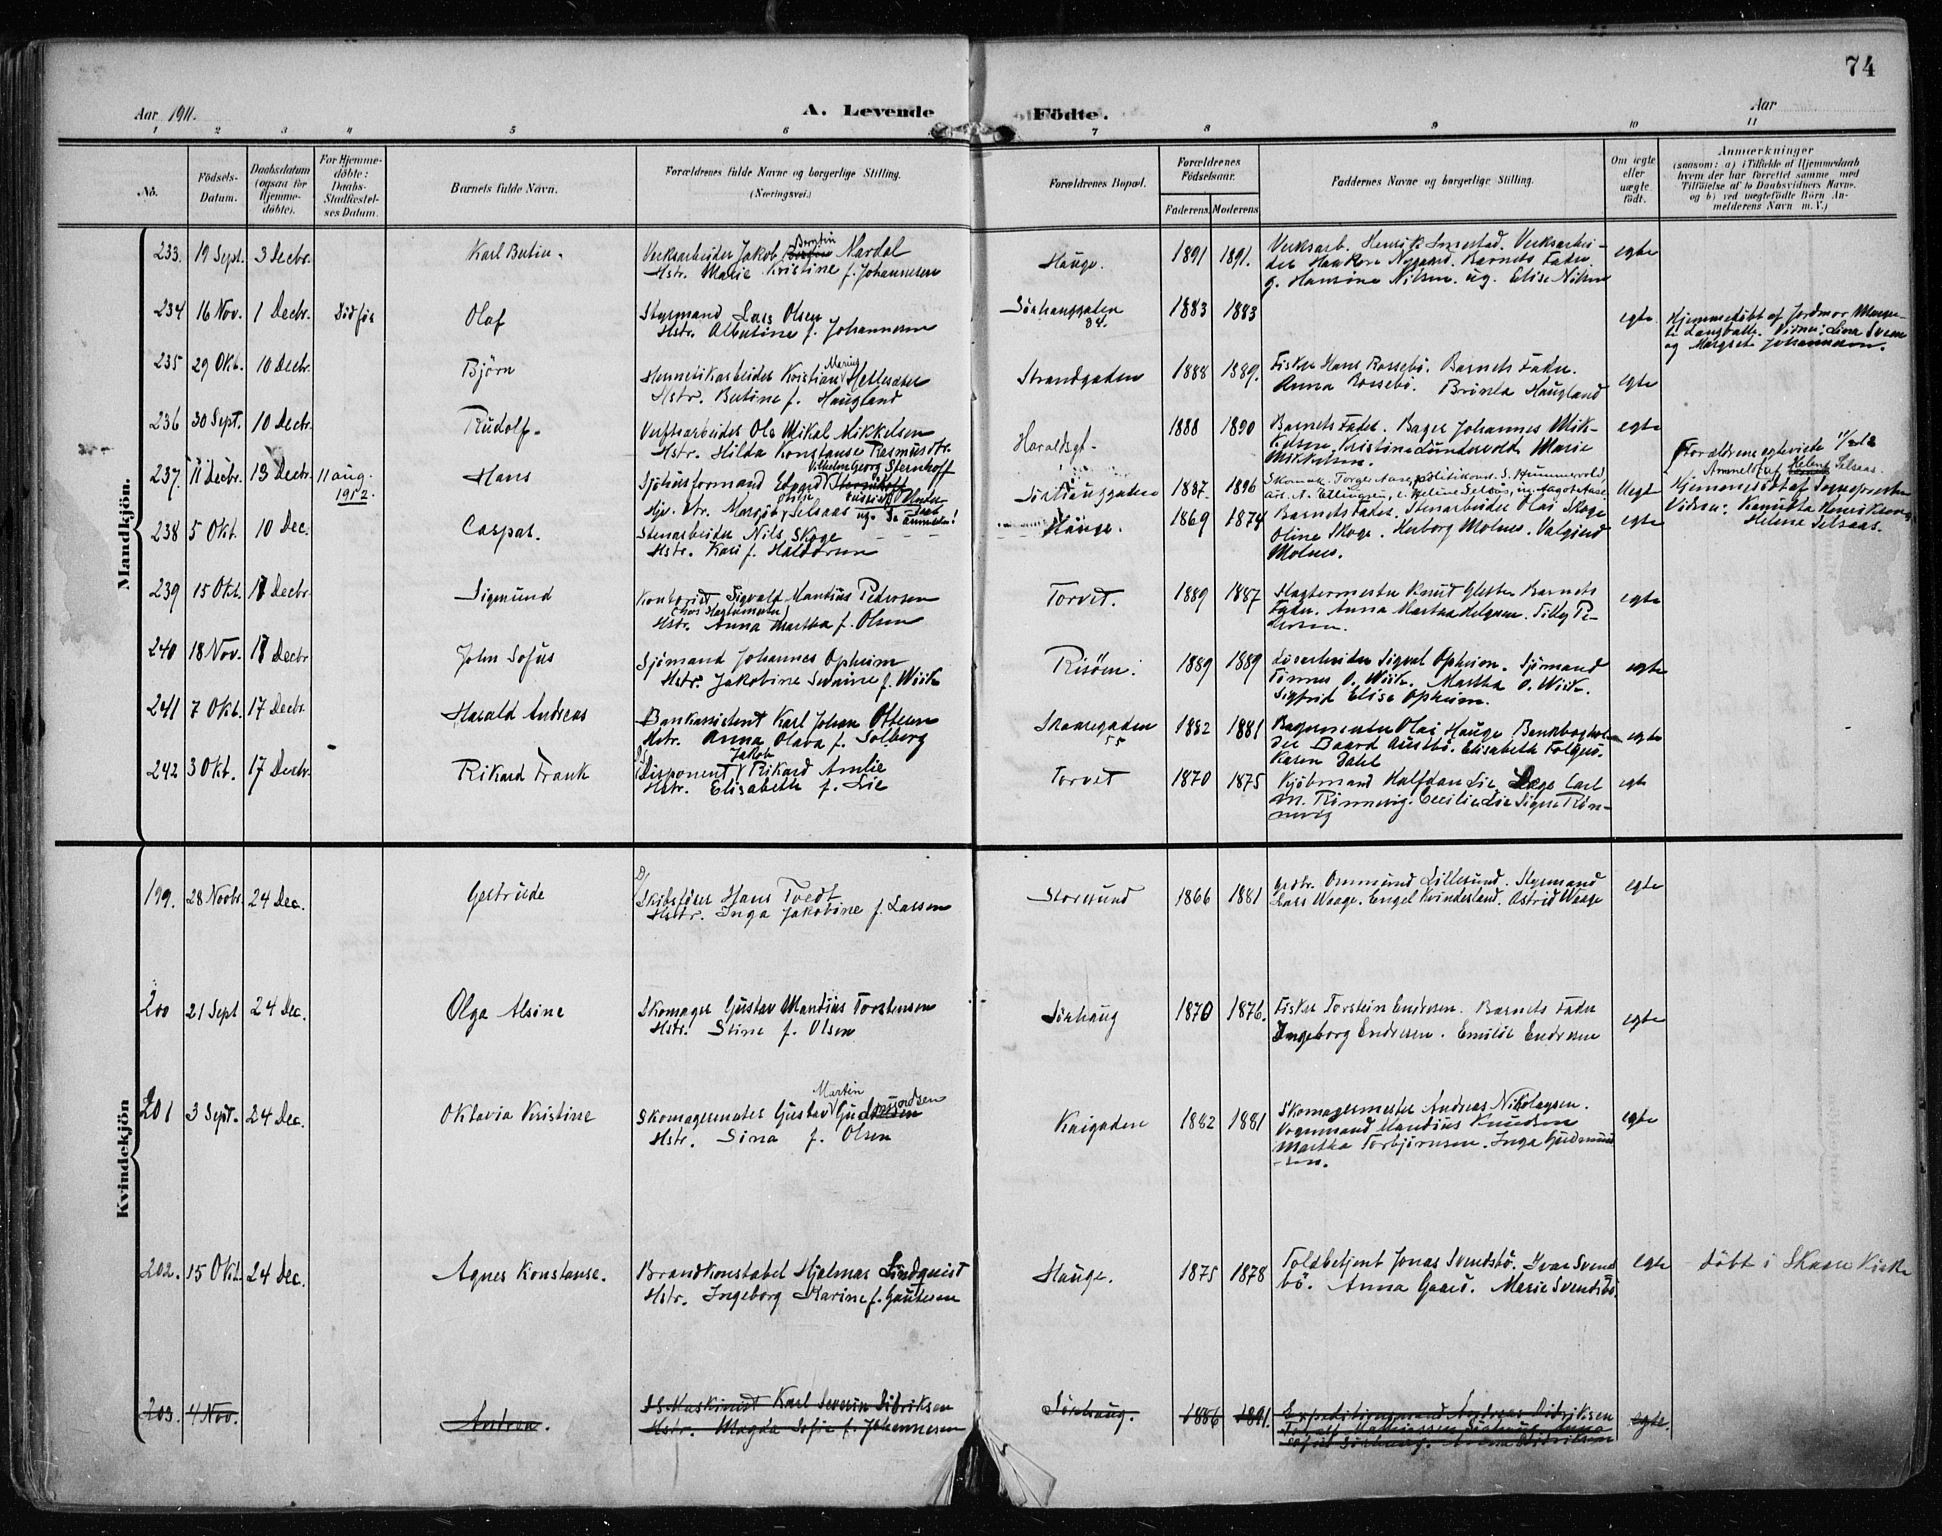 74
Aar 1911.
A. Levende Födte.
Aar
1 2 3 4 5 6 7 8 9 10 11
No.
Födsels-Datum.
Daabsdatum (ogsaa for Hjemme-döbte).
For Hjemme-döbte: Daabs-Stadfæstelses Datum.
Barnets fulde Navn.
Forældrenes fulde Navne og borgerlige Stilling. (Næringsvei.)
Forældrenes Bopæl.
Forældrenes Födselsaar.
Faderens Moderens
Faddernes Navne og borgerlige Stilling.
Om ægte eller uægte födt.
Anmærkninger
(saasom: a) i Tilfælde af Hjemmedaab hvem der har forrettet samme, med Tilföielse af to Daabsvidners Navne, og b) ved uægtefödte Börn Anmelderens Navn m. V.)
Mandkjön.
233. 19 Sept. 3 Decbr. Karl Bertin.
Verksarbeider Jakob Bergtin Nardal
Hstr. Marie Kristine f. Johannesen
Hauge. 1891 1891.
Verksarb. Henrik Smestad. Verksarbei-
der Haakon Nygaard. Barnets Fader.
g. Hansine Nilsen. ug. Elise Nilsen
egte
234 16 Nov. 1 Decbr. Död før Olaf
Styrmand Lars Olsen
Hstr. Albertine f. Johannesen
Sørhauggaten 84. 1883 1883
egte.
Hjemmedøbt af Jordmor
Vidner: Lina Svens
og Margret Johannesen.
235 29 Okt. 10 Decbr. Bjørn
Hermetikarbeider Kristian Mering Hetlesæter
Hstr. Bertine f. Haugland
Strandgaden 1888 1889.
Fisker Hans Rossebø. Barnets Fader.
Anna Rossebø. Haugland
egte
236 30 Sept. 10 Decbr. Rudolf.
Verftsarbeider Ole Mikal Mikkelsen
Hstr. Hilda Konstanse f. Rasmusdtr.
Haraldsgt. 1888 1890
Barnets Fader. Bager Johannes Mik-
kelsen. Kristine Lundervold Marie
Mikkelsen.
egte
237. 11 Decbr. 13 Decbr. 11 aug. 1912. Hans
Sjöturformand Edvard Vilhelm Georg Sternhoff
Sørhauggaden 1887. 1896
Skomak. Torge Aase, politikonst. S. Hummervold,
arb. A. Ellingsen,
Uegte
Forældrene egteviede
Anmeldt af Helene Selsaas.
Hjemmedøbt af Sognepresten
Vidner: Henriksen,
Helene Selsaas.
238 5 Okt. 10 Dec. Caspar.
Stenarbeider Nils Skoge
Hstr. Kari f. Haldorsen
Hauge. 1869 1874
Barnets Fader. Stenarbeider Olai Skoge
Oline Skoge. Herborg Molnes. Valgjerd
Molnes.
egte
239 15 Okt. 17 Decbr. Sigmund
Kontorist Sigvald Mantius Pedersen
Hstr. Anna Martha f. Olsen
Torvet. 1889 1887
Slagtermester Knut Barnets
Fader. Anna Martha Helgesen. Tilly Pe-
dersen.
egte
240 18 Nov. 17 Decbr John Sofus
Sjömand Johannes Opheim
Hstr. Jakobine Severine f. Wiik
Risöen. 1889 1889
Sigval Opheim. Sjömand
Tinnes O. Wiik. Martha O. Wiik.
Sigfrid Elise Opheim.
egte
241 7 Okt. 17 Decbr. Harald Andreas
Bankassistent Karl Johan Ottesen
Hstr. Anna Olava f. Solberg
Skaaregaden 55 1882 1881
Bagermester Olai Hauge. Bankbogholder
Baard Austbö. Elisabeth Folgerö.
Karen Dahl
egte
242 3 Okt. 17 Decbr. Rikard Frank
Disponent Jakob Rikard Amlie
Hstr. Elisabeth f. Lie
Torvet 1870 1875
Kjöbmand Halfdan Lie. Læge Carl
M. Rönnevig. Cecilie Lie Signe Rön-
nevig
egte
Kvindekjön
199. 28 Novbr. 24 Dec. Gertrude
Skibsförer Hans Tvedt
Hstr. Inga Jakobine f. Larsen
Storesund 1866 1881
Grdbr. Ommund Lillesund. Styrmand
Lars Waage. Engel Kvindesland. Astrid Waage
egte
200 21 Sept 24 Dec. Olga Alsine
Skomager Gustav Mantius Torstensen
Hstr. Stine f. Olsen
Sørhaug 1870 1876.
Fisker Torstein Endresen. Barnets Fader
Ingeborg Endresen. Emilie Endresen
egte
201 3 Sept. 24 Dec. Oktavia Kristine
Skomagermester Gustav Martin Gudmundsen
Hstr. Sina f. Olsen
Kaigaden 1882 1881
Skomagermester Andreas Nikolaysen.
Vognmand Mandius Knudsen
Martha Torbjörnsen. Inga Gudmund
-sen.
egte
202. 15 Okt. 24 Dec. Agnes Konstanse.
Brandkonstabel Hjalmar Lindquist
Hstr. Ingeborg Karine f. Gautesen
Hauge. 1875 1878
Toldbetjent Jonas Svendsbö. Ivar Svends
bö. Anna Gaard. Marie Svendsbö.
egte döbt i Skaare Kirke
203. 4 Nov. Andrea.
Maskinist Karl Severin Didriksen
Hstr. Magda Sofie f. Johannesen
Sørhaug. 1886 1891.
Expeditionsmand Andreas Didriksen
egte.